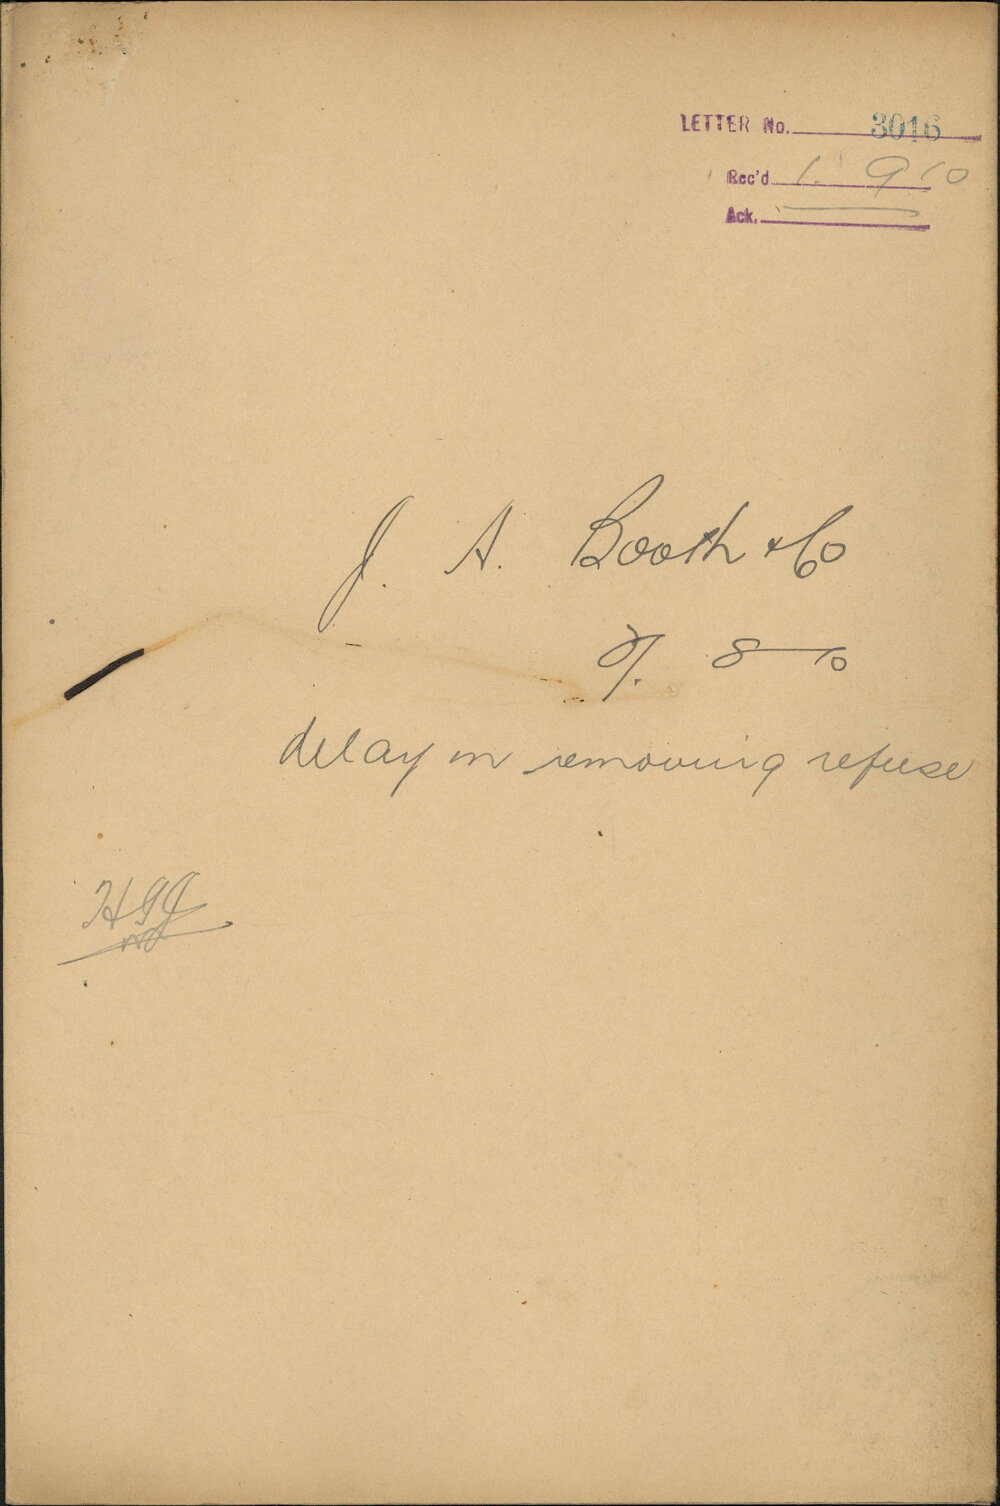 LETTER No. 3016
Rec'd 1. 9 10
Ack.
J. A. Booth & Co
8 10
delay in removing refuse